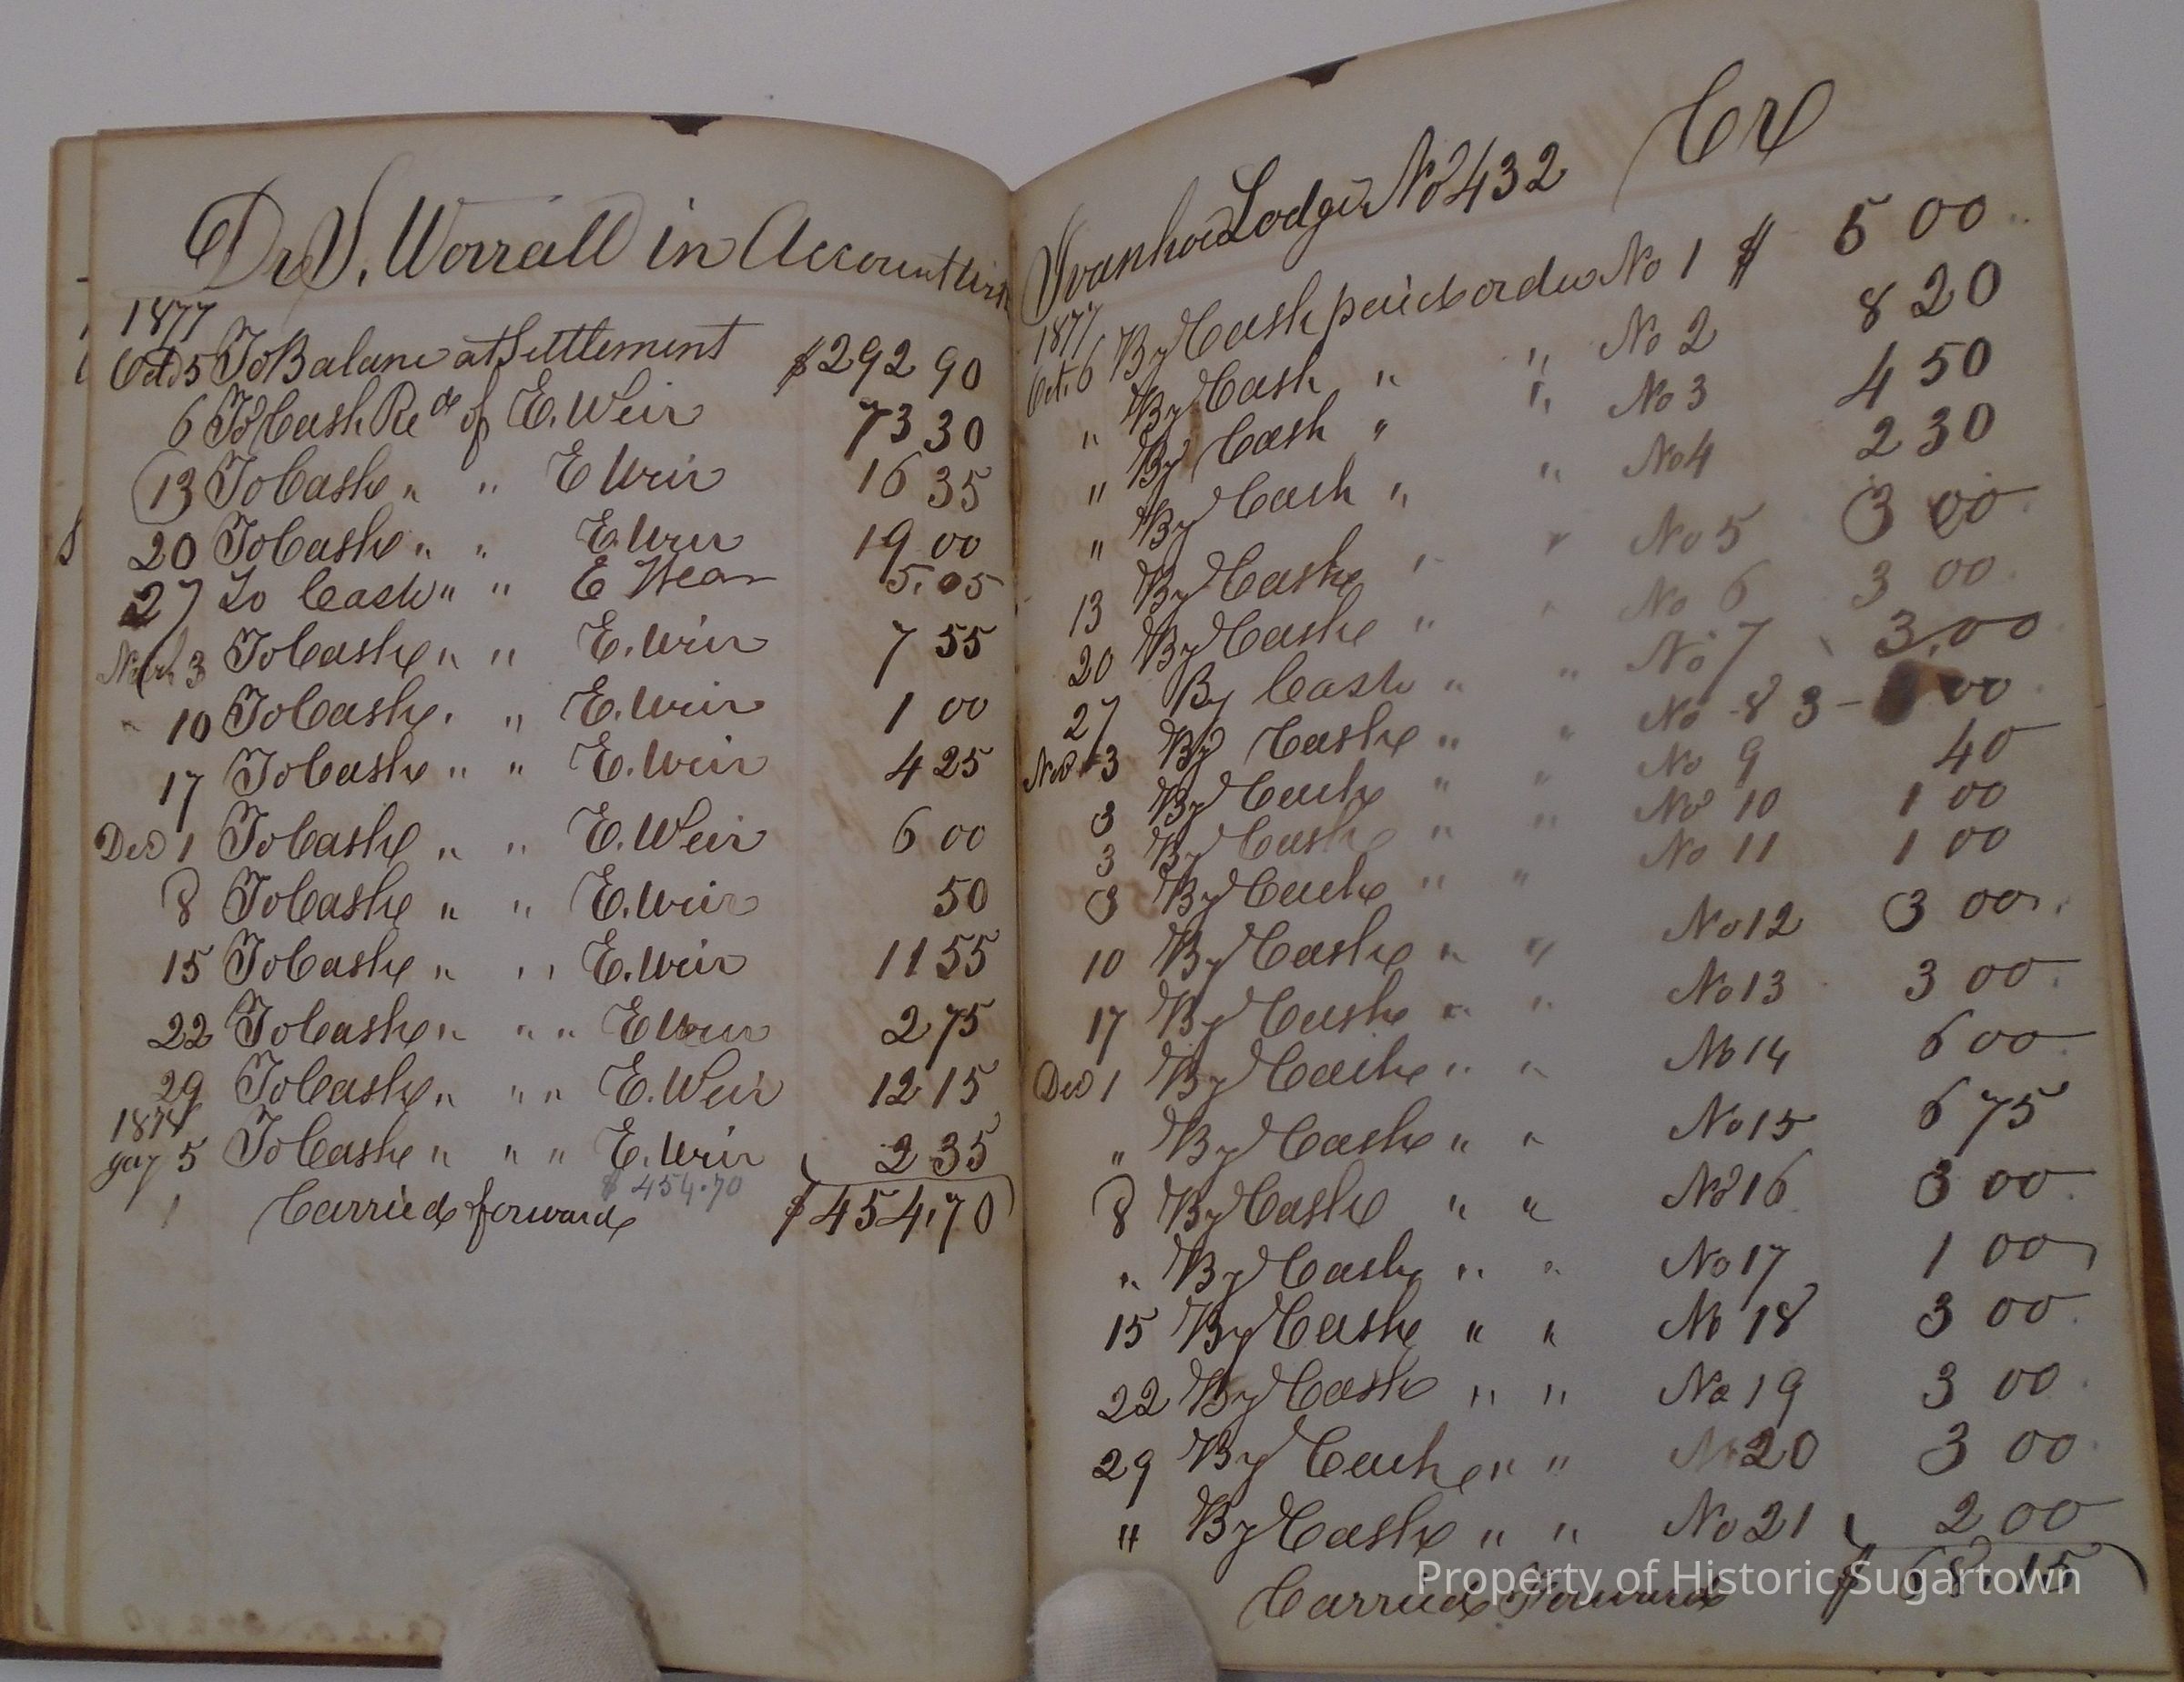 Dr S. Worrall in Account with
1877
Oct 5 To Balance at Settlement $292 90
6 To Cash Recd of E. Weir 73 30
13 To Cash " " E Weir 16 35
20 To Cash " " E. Weir 19 00
27 To Cash " " E Wear 5.05
Nov 3 To Cash " " E. Weir 7 55
" 10 To Cash " " E. Weir 1 00
17 To Cash " " E. Weir 4 25
Dec 1 To Cash " " E. Weir 6 00
8 To Cash " " E. Weir 50
15 To Cash " " E. Weir 11 55
22 To Cash " " " E Weir 2 75
29 To Cash " " " E. Weir 12 15
1878
Jay 5 To Cash " " " E. Weir 2 35
$ 454.70
Carried forward $454.70
Ivanhoe Lodge No 432 Cr
1877
Oct. 6 By Cash paid order No 1 $ 5 00
" By Cash " " No 2 8 20
" By Cash " " No 3 4 50
" By Cash " " No 4 2 30
13 By Cash " " No 5 3 00
20 By Cash " " No 6 3 00
27 By Cash " " No 7 3.00
Nov 3 By Cash " " No 8 3 - 00
3 By Cash " " No 9 40
3 By Cash " " No 10 1 00
3 By Cash " " No 11 1 00
10 By Cash " " No 12 3 00
17 By Cash " " No 13 3 00
Dec 1 By Cash " " No 14 6 00
" By Cash " " No 15 6 75
8 By Cash " " No 16 3 00
" By Cash " " No 17 1 00
15 By Cash " " No 18 3 00
22 By Cash " " No 19 3 00
29 By Cash " " No 20 3 00
" By Cash " " No 21 2 00
Carried Forward $ 68.15
Property of Historic Sugartown